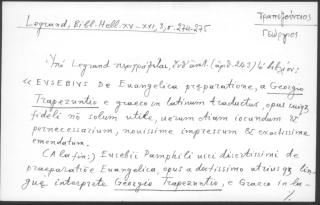 Legrand, Bibl. Hell. XV-XVI, 3, σ. 274-275
Τραπεζούντιος
Γεώργιος
Ὑπὸ Legrand περιγράφεται, ἀριθ. 243) τὸ βιβλίον:
« EVSEBIVS De Euangelica præparatione, a Georgio
Trapezuntio e graeco in latinum traductus, opus cuiq;
fideli nō solum utile, uerum etiam iocundum &
pernecessarium, nouissime impressum & exactissime
emendatum.
(Αla fin:) Eusebii Pamphili uiri disertissimi de
praeparatiōe Euangelica, opus a doctissimo utriusq; lin-
guę interprete Georgio Trapezuntio, e Graeco in la-